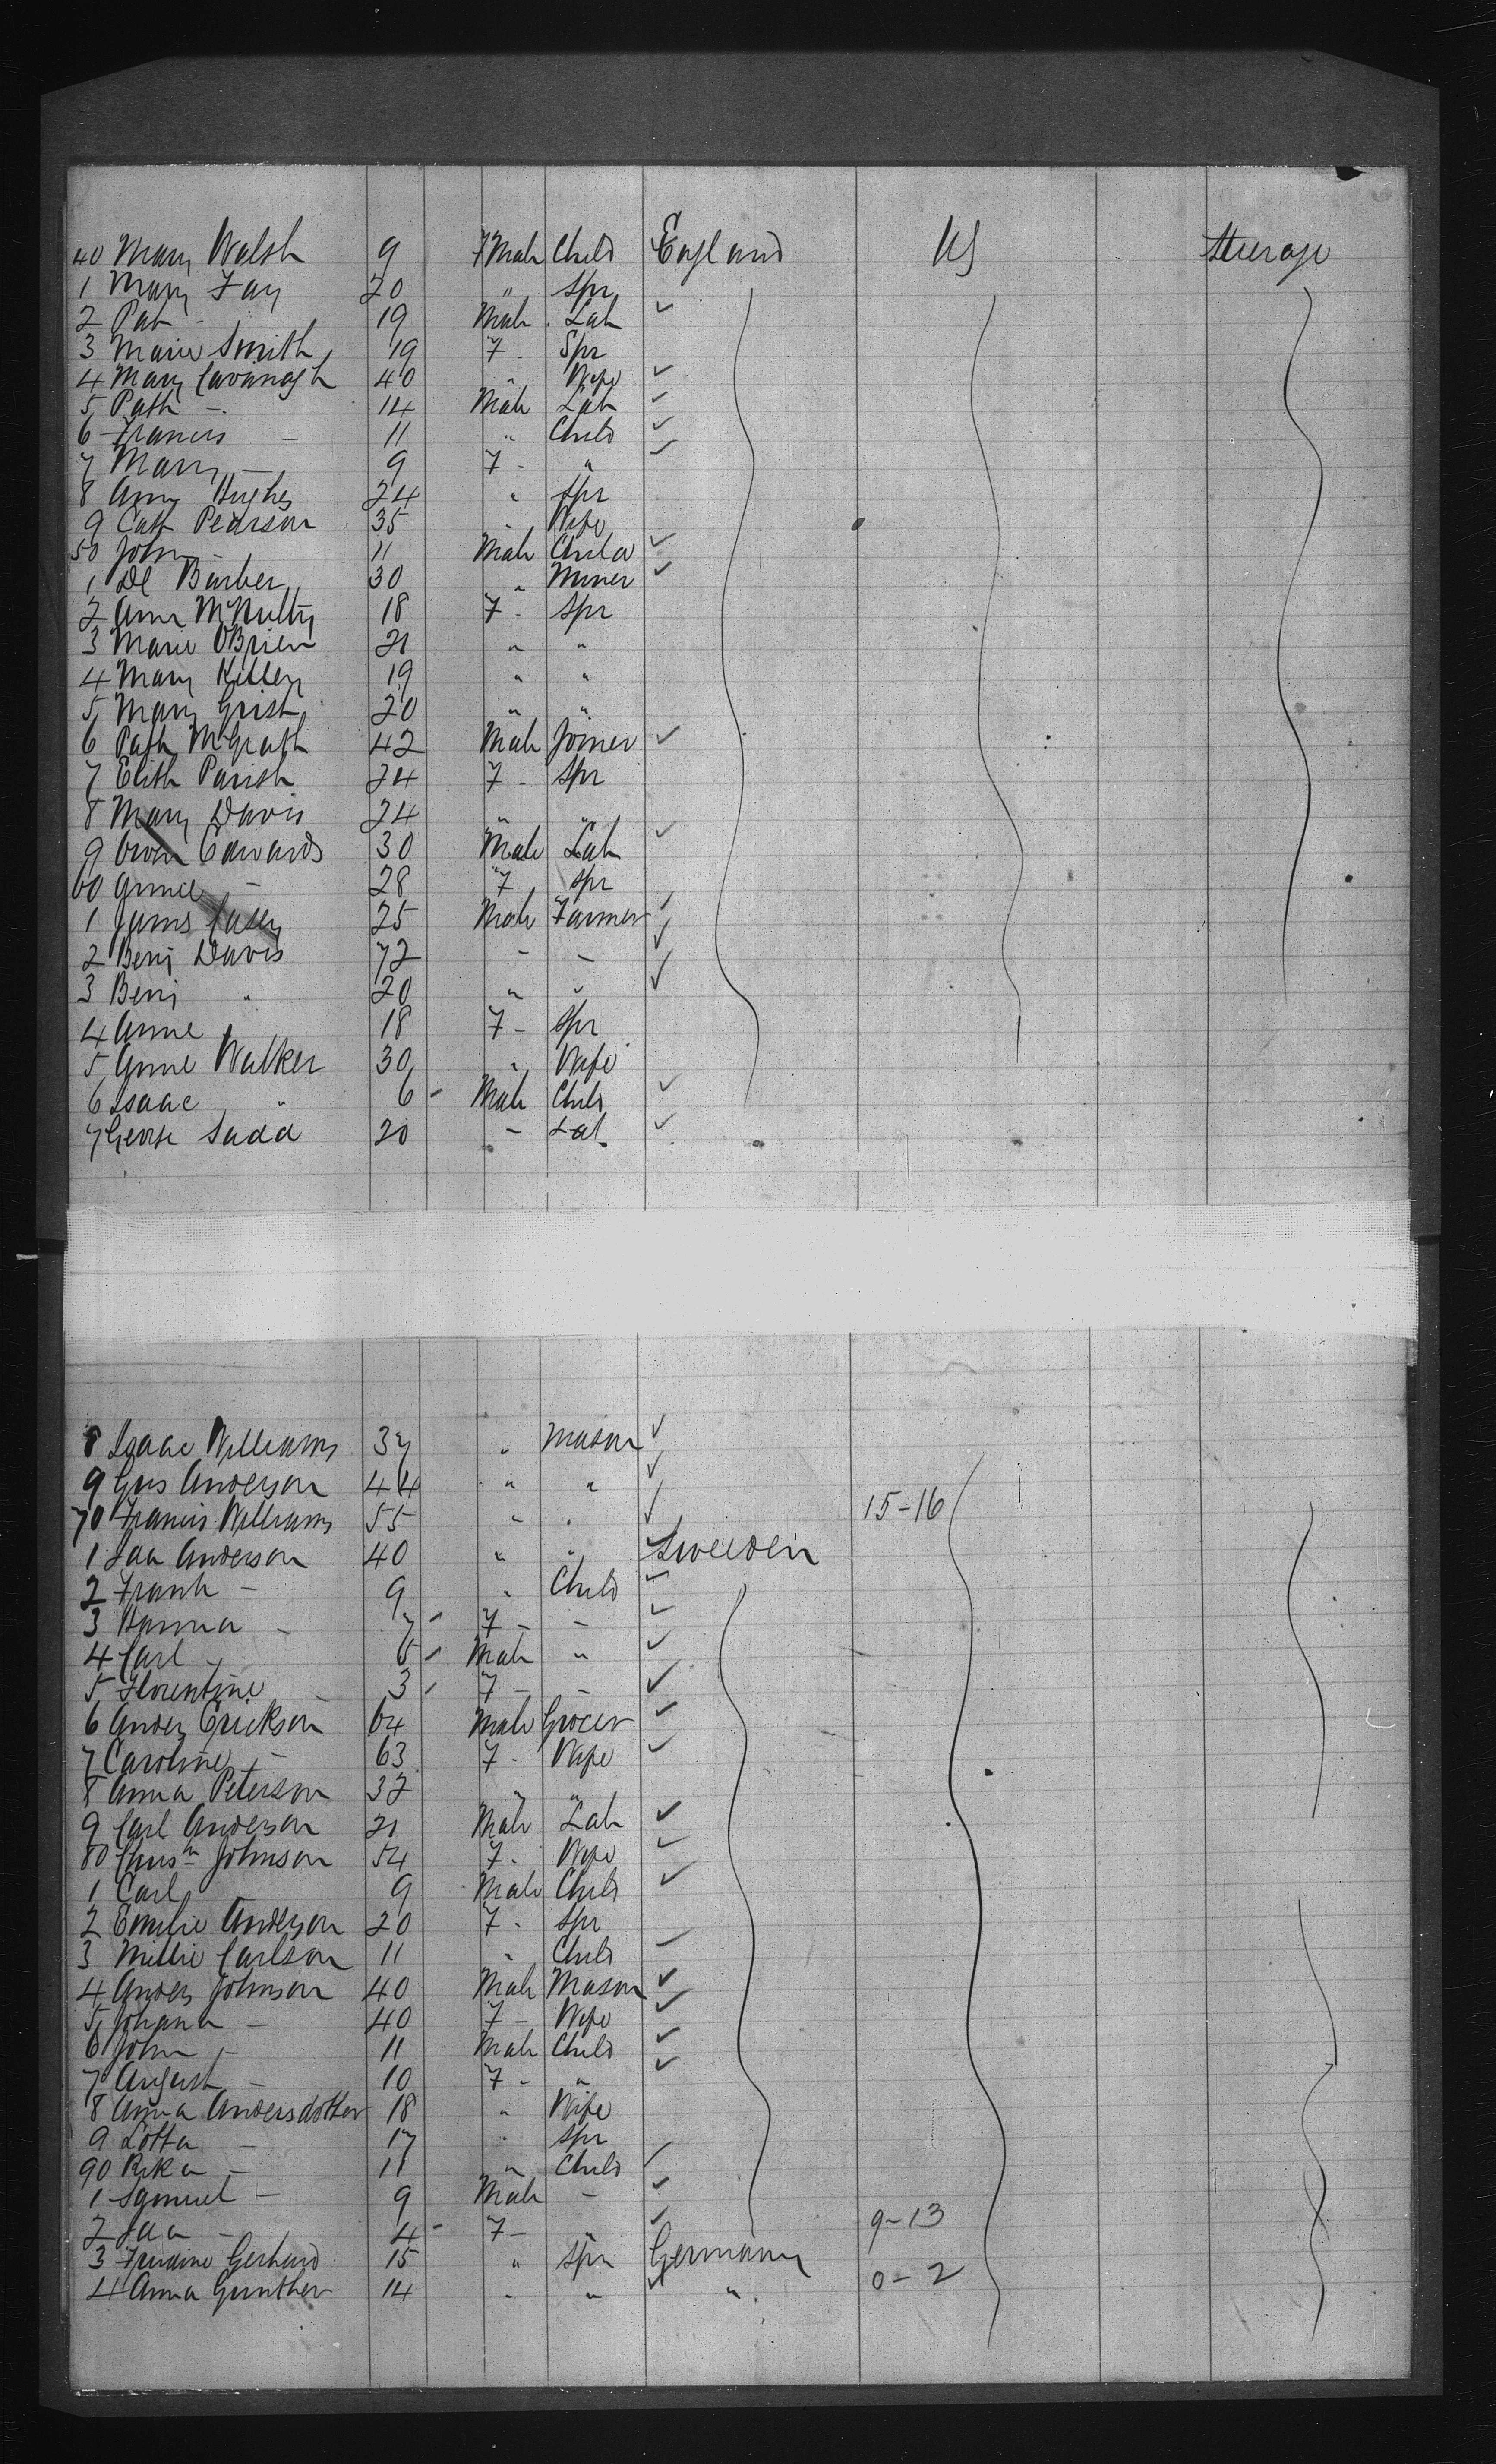 40 Mary Walsh 9 F Male Child England US Steerage
1 Mary Fay 20 " Spr
2 Pat - 19 Male Lab ✓
3 Marie Smith 19 F - Spr
4 Mary Cavanagh 40 " Wife ✓
5 Patk - 14 Male Lab ✓
6 Francis - 11 " Child ✓
7 Mary - 9 F - " ✓
8 Amy Hughes 24 " Spr
9 Cath Pearson 35 " Wife
50 John - 11 Male Child ✓
1 Barber 30 " Miner ✓
2 Ann McNulty 18 F - Spr
3 Marie O'Brien 21 " "
4 Mary 19 " "
5 Mary Grist 20 " "
6 Patk McGrath 42 Male Joiner ✓
7 Elith Parish 24 F - Spr
8 Mary Davis 24 " "
9 Owen Edwards 30 Male Lab ✓
60 Annie - 28 F Spr
1 James Casey 25 Male Farmer ✓
2 Benj Davis 72 - - ✓
3 Benj " 20 " " ✓
4 Anne 18 F - Spr
5 Anne Walker 30 " Wife
6 Isaac " 6 - Male Child ✓
7 George Sadd 20 - Lab ✓
8 Isaac Williams 37 " Mason ✓
9 Gus Anderson 44 " " ✓
70 Francis Williams 55 " " ✓ 15-16
1 Anderson 40 " " Sweeden
2 Frank - 9 " Child ✓
3 Hanna - 7 - F - - ✓
4 Carl - 5 - Male " ✓
5 Florentine - 3 - F - - ✓
6 Anders Erickson 64 Male Grocer ✓
7 Caroline - 63 F - Wife ✓
8 Anna Peterson 32 " "
9 Carl Anderson 21 Male Lab ✓
80 Chrisn Johnson 54 F - Wife ✓
1 Carl - 9 Male Child ✓
2 Emilie Anderson 20 F - Spr
3 Millie Carlson 11 " Child ✓
4 Anders Johnson 40 Male Mason ✓
5 Johana - 40 F - Wife ✓
6 John - 11 Male Child ✓
7 August - 10 F - " ✓
8 Anna Andersdotter 18 " Wife
9 Lotta - 17 " Spr
90 Rika - 11 " Child ✓
1 Samuel - 9 Male - ✓
2 - 4 - F - " ✓ 9-13
3 Gerhard 15 " Spr Germany
4 Anna Gunther 14 " " ✓ " 0-2